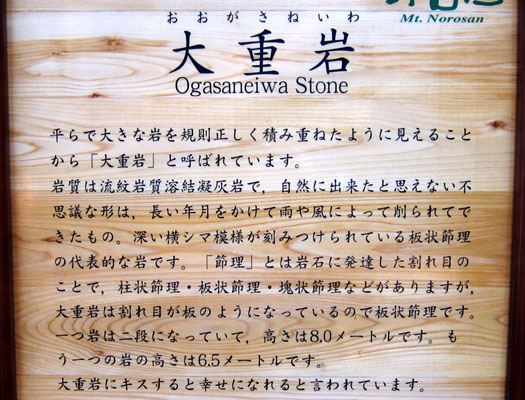 Mt. Norosan
おおがさねいわ
大重岩
Ogasaneiwa Stone
平らで大きな岩を規則正しく積み重ねたように見えること
から「大重岩」と呼ばれています。
岩質は流紋岩質溶結凝灰岩で，自然に出来たと思えない不
思議な形は，長い年月をかけて雨や風によって削られてで
きたもの。深い横シマ模様が刻みつけられている板状節理
の代表的な岩です。「節理」とは岩石に発達した割れ目の
ことで，柱状節理・板状節理・塊状節理などがありますが，
大重岩は割れ目が板のようになっているので板状節理です。
一つ岩は二段になっていて，高さは8.0メートルです。も
う一つの岩の高さは6.5メートルです。
大重岩にキスすると幸せになれると言われています。